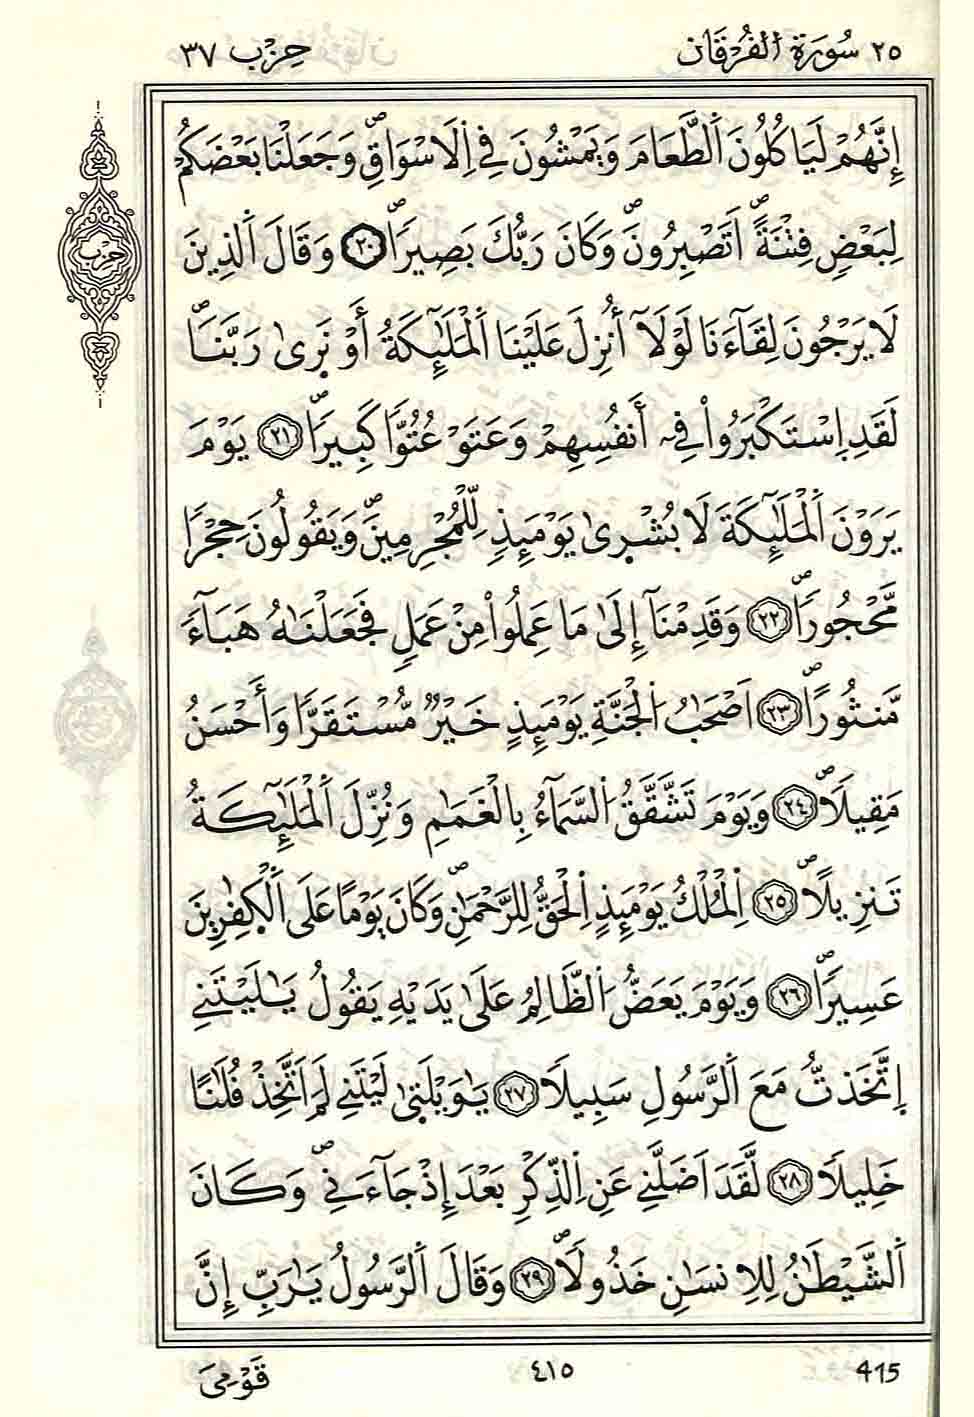 ٢٥ سُورَةُ الْفُرْقَانِ حِزْب ٣٧
إِنَّهُمْ لَيَاكُلُونَ اَ۬لطَّعَامَ وَيَمْشُونَ فِے اِ۬لَاسْوَاقِۖ وَجَعَلْنَا بَعْضَكُمْ
لِبَعْضٖ فِتْنَةًۖ اَتَصْبِرُونَۖ وَكَانَ رَبُّكَ بَصِيراٗۖ ٢٠ وَقَالَ اَ۬لذِينَ
حزب
لَا يَرْجُونَ لِقَآءَنَا لَوْلَآ أُنزِلَ عَلَيْنَا اَ۬لْمَلَٰٓئِكَةُ أَوْ نَر۪ىٰ رَبَّنَاۖ
لَقَدِ اِ۪سْتَكْبَرُواْ فِےٓ أَنفُسِهِمْ وَعَتَوْ عُتُوّاٗ كَبِيراٗۖ ٢١ يَوْمَ
يَرَوْنَ اَ۬لْمَلَٰٓئِكَةَ لَا بُشْر۪ىٰ يَوْمَئِذٖ لِّلْمُجْرِمِينَۖ وَيَقُولُونَ حِجْراٗ
مَّحْجُوراٗۖ ٢٢ وَقَدِمْنَآ إِلَىٰ مَا عَمِلُواْ مِنْ عَمَلٖ فَجَعَلْنَٰهُ هَبَآءٗ
مَّنثُوراًۖ ٢٣ اَصْحَٰبُ اُ۬لْجَنَّةِ يَوْمَئِذٍ خَيْرٞ مُّسْتَقَرّاٗ وَأَحْسَنُ
مَقِيلاٗۖ ٢٤ وَيَوْمَ تَشَّقَّقُ اُ۬لسَّمَآءُ بِالْغَمَٰمِ وَنُزِّلَ اَ۬لْمَلَٰٓئِكَةُ
تَنزِيلاًۖ ٢٥ اِ۬لْمُلْكُ يَوْمَئِذٍ اِ۬لْحَقُّ لِلرَّحْمَٰنِۖ وَكَانَ يَوْماً عَلَى اَ۬لْكٰ۪فِرِينَ
عَسِيراٗۖ ٢٦ وَيَوْمَ يَعَضُّ اُ۬لظَّالِمُ عَلَىٰ يَدَيْهِ يَقُولُ يَٰلَيْتَنِے
اِ۪تَّخَذتُّ مَعَ اَ۬لرَّسُولِ سَبِيلاٗ ٢٧ يَٰوَيْلَت۪ىٰ لَيْتَنِے لَمَ اَتَّخِذْ فُلَٰناً
خَلِيلاٗ ٢٨ لَّقَدَ اَضَلَّنِے عَنِ اِ۬لذِّكْرِ بَعْدَ إِذْ جَآءَنِےۖ وَكَانَ
اَ۬لشَّيْطَٰنُ لِلِانسَٰنِ خَذُولاٗۖ ٢٩ وَقَالَ اَ۬لرَّسُولُ يَٰرَبِّ إِنَّ
415 ٤١٥ قَوْمِيَ